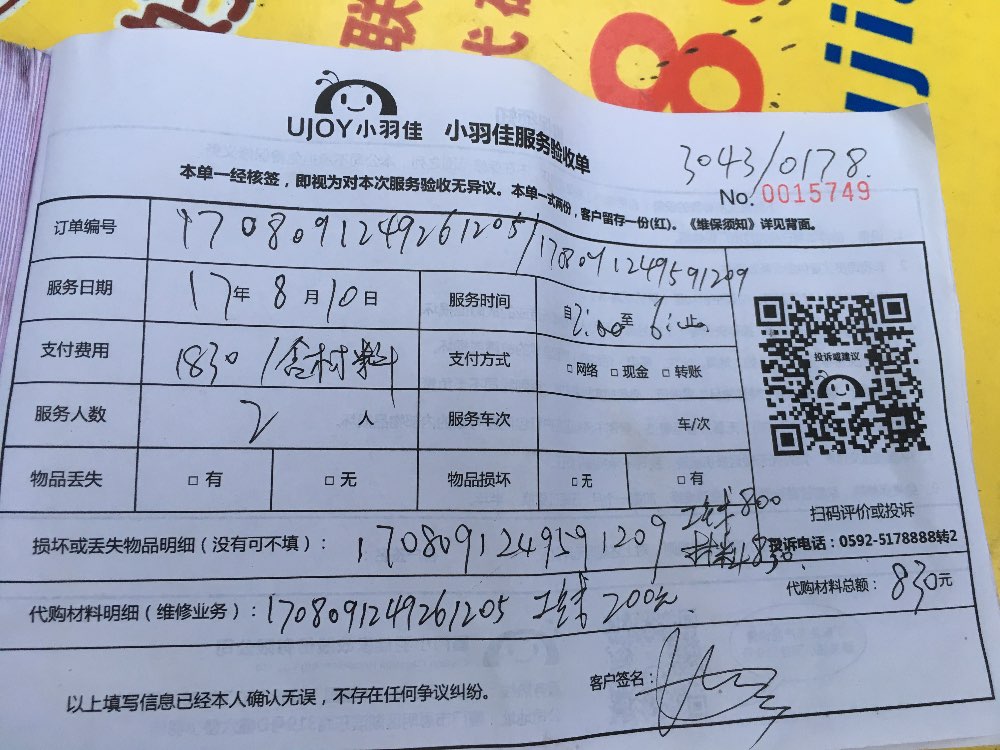 UJOY小羽佳 小羽佳服务验收单
3043/0178.
No. 0015749
本单一经核签，即视为对本次服务验收无异议。本单一式两份，客户留存一份(红)。《维保须知》详见背面。
订单编号 1708091249261205/1708091249591209
服务日期 17年 8月10日 服务时间 自2:00至6:止
支付费用 1830/含材料 支付方式 □网络 □现金 □转账
投诉或建议
服务人数 2 人 服务车次 车/次
物品丢失 □有 □无 物品损坏 □无 □有
扫码评价或投诉
投诉电话：0592-5178888转2
损坏或丢失物品明细（没有可不填）：1708091249591209 工钱800
材料830
代购材料明细（维修业务）：1708091249261205 工钱200元
代购材料总额：830元
客户签名：
以上填写信息已经本人确认无误，不存在任何争议纠纷。